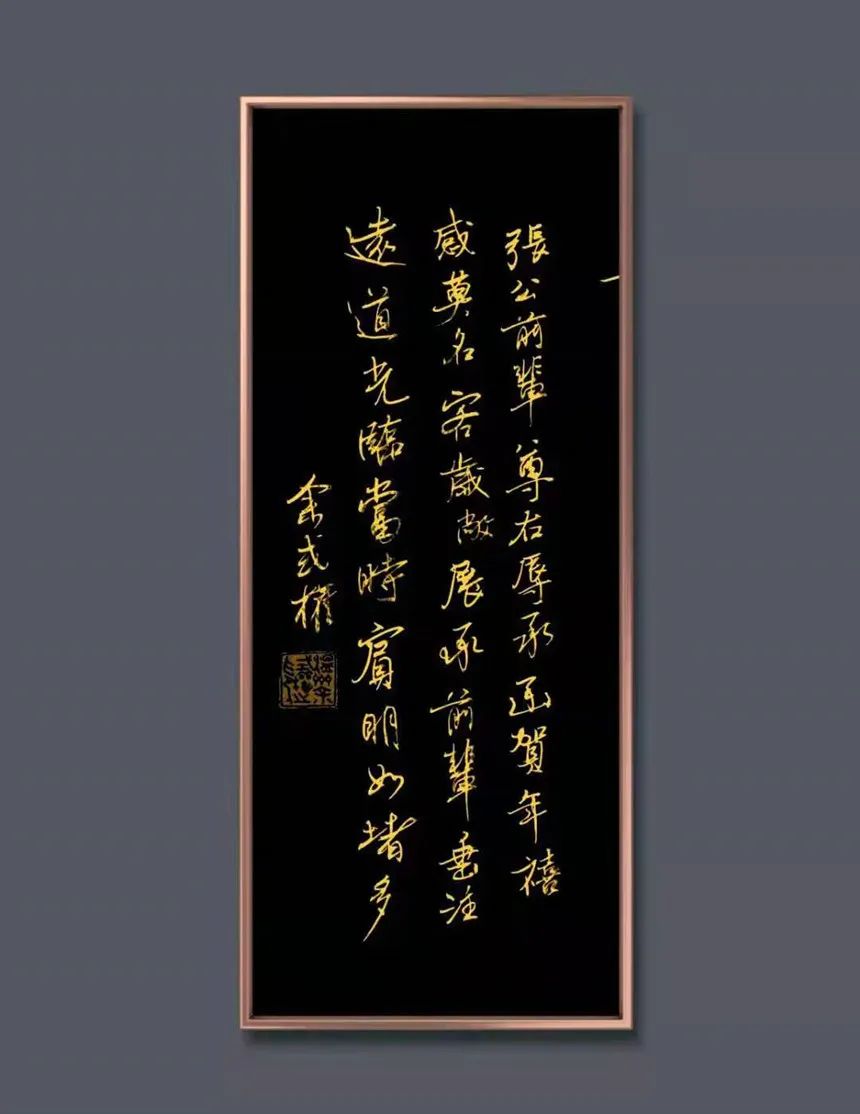 張公前輩尊右辱承函賀年禧
感莫名客歲敝展承前輩垂注
遠道光臨當時賓朋如堵多
余武權